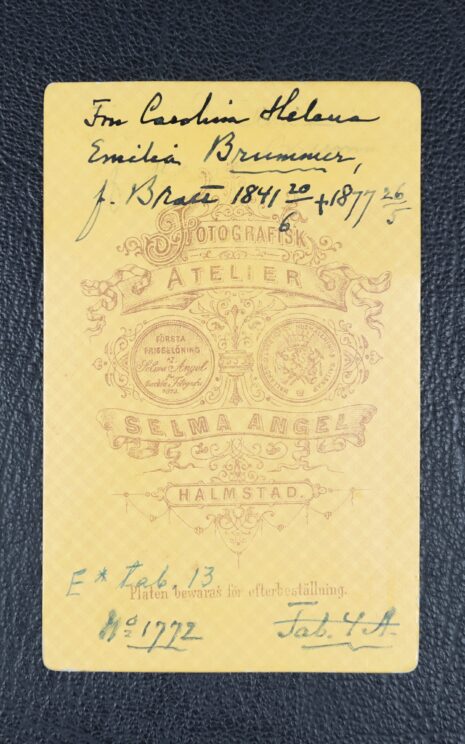 Fru Carolina Helena
Emilia Brummer,
f. Bratt 1841 20/6 +1877 26/5
FOTOGRAFISK
ATELIER
FÖRSTA
PRISBELÖNING
AF
Selma Angel
SELMA ANGEL
HALMSTAD.
E* tab. 13
Platen bewaras för efterbeställning.
No 1772
Tab. 4 A.